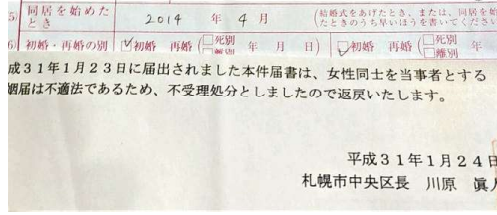 (5) 同居を始めたとき 2014 年 4 月 (結婚式をあげたとき、または、同居を始
たときのうち早いほうを書いてください
6) 初婚・再婚の別 ☑初婚 再婚 (□死別 □離別 ☑初婚 再婚 (□死別 □離別
成31年1月23日に届出されました本件届書は、女性同士を当事者とする
姻届は不適法であるため、不受理処分としましたので返戻いたします。
平成31年1月24日
札幌市中央区長 川原 眞人